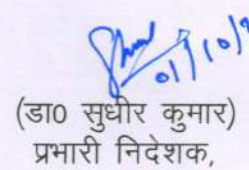 01/10/2
(डा० सुधीर कुमार)
प्रभारी निदेशक,